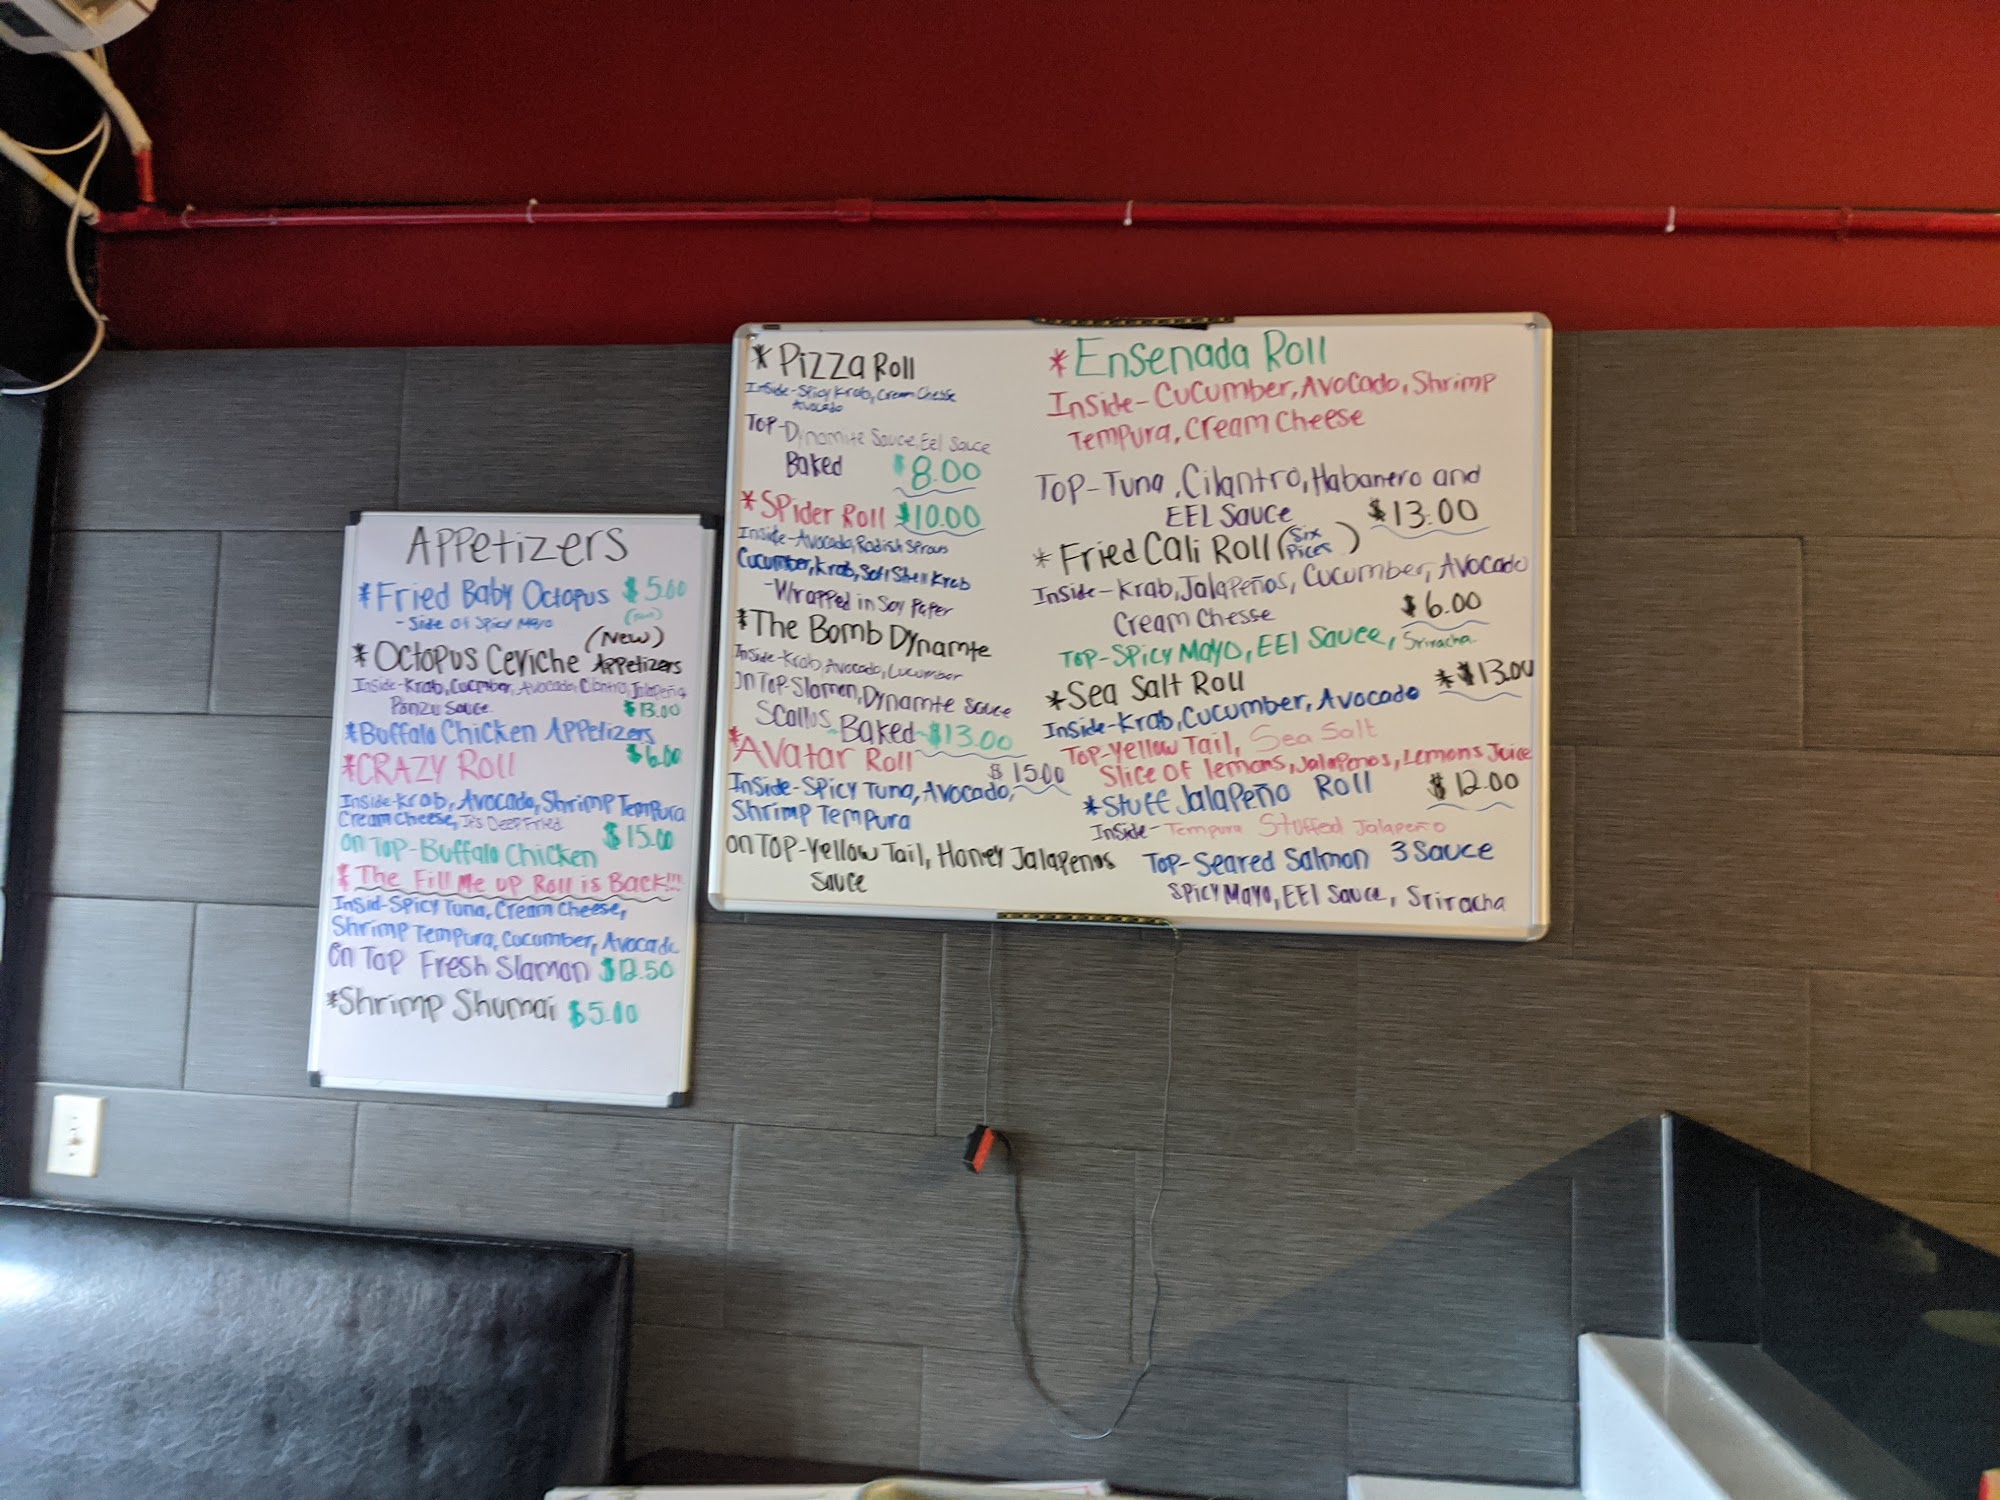 APPetizers
*Fried Baby Octopus $5.00
- Side of Spicy Mayo
(New)
*Octopus Ceviche Appetizers
Inside-Krab, Cucmber, Avocado, Cilantro, Jalapeño
Ponzu Sauce $13.00
*Buffalo Chicken Appetizers
$6.00
*CRAZY Roll
Inside-Krab, Avocado, Shrimp Tempura
Cream Cheese, It's Deep Fried
$15.00
on Top-Buffalo Chicken
*The Fill Me up Roll is Back!!!
Insid-Spicy Tuna, Cream Cheese,
Shrimp Tempura, Cucumber, Avocado
On Top Fresh Slamon $12.50
*Shrimp Shumai $5.00
*Pizza Roll
Inside-Spicy Krab, Cream Chesse
Avocado
Top-Dynamite Sauce, Eel Sauce
Baked $8.00
*Spider Roll $10.00
Inside-Avocado, Radish Sprous
Cucumber, Krab, Soft Shell Krab
-Wrapped in Soy Paper
*The Bomb Dynamte
Inside-Krab, Avocado, Cucumber
On Top-Slamon, Dynamte Sauce
Scallus Baked $13.00
*Avatar Roll
$15.00
Inside-Spicy Tuna, Avocado,
Shrimp Tempura
on Top-Yellow Tail, Honey Jalapenos
Sauce
*Ensenada Roll
Inside-Cucumber, Avocado, Shrimp
Tempura, Cream Cheese
Top-Tuna, Cilantro, Habanero and
EEL Sauce $13.00
*Fried Cali Roll (Six Pices)
Inside-Krab, Jalapeños, Cucumber, Avocado
Cream Chesse $6.00
Top-Spicy Mayo, EEl Sauce, Sriracha
*Sea Salt Roll *$13.00
Inside-Krab, Cucumber, Avocado
Top-Yellow Tail, Sea Salt
Slice of lemons, Jalapenos, Lemons Juice
*Stuff Jalapeño Roll $12.00
Inside-Tempura Stuffed Jalapeño
Top-Seared Salmon 3 Sauce
Spicy Mayo, EEl Sauce, Sriracha